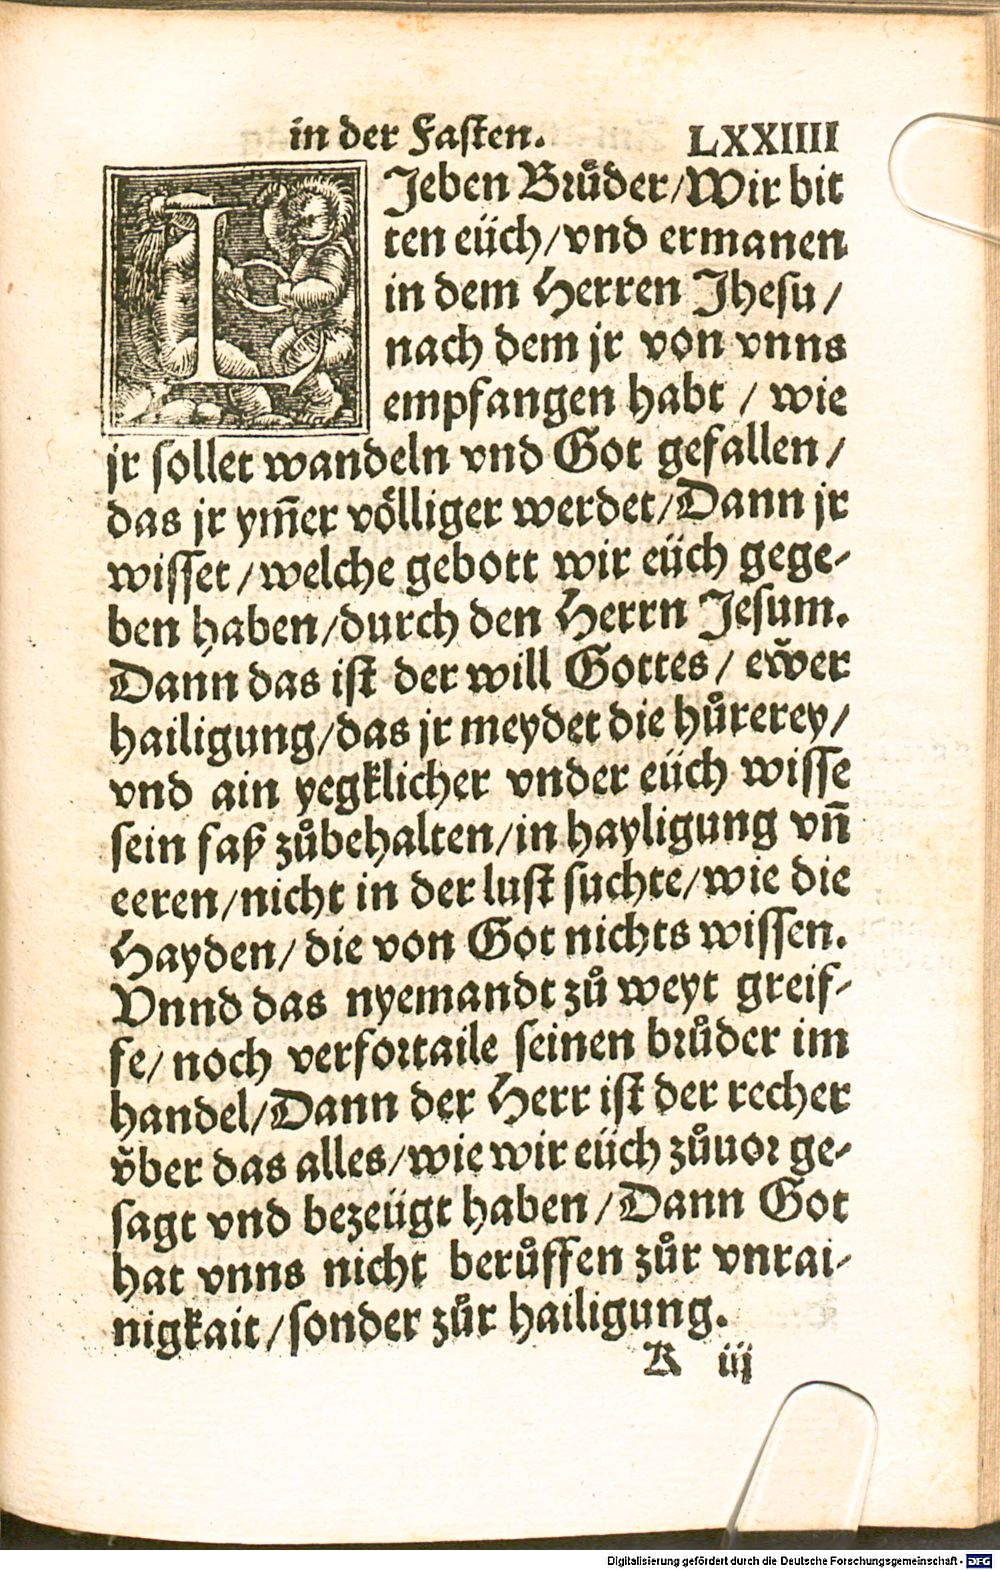 in der Faſten. LXXIIII
LJeben Bꝛuͤder/Wir bit
ten eüch/vnd ermanen
in dem Herren Jheſu/
nach dem jr von vnns
empfangen habt / wie
jr ſollet wandeln vnd Got gefallen/
das jr ym̃er voͤlliger werdet/Dann jr
wiſſet/welche gebott wir eüch gege-
ben haben/durch den Herrn Jeſum.
Dann das iſt der will Gottes/ ew̆er
hailigung/das jr meydet die huͦrerey/
vnd ain yegklicher vnder eüch wiſſe
ſein faß zuͦbehalten/in hayligung vñ
eeren/nicht in der luſt ſuchte/wie die
Hayden/ die von Got nichts wiſſen.
Vnnd das nyemandt zuͦ weyt greif-
fe/ noch verfoꝛtaile ſeinen bꝛuͦder im
handel/Dann der Herr iſt der recher
v̆ber das alles/wie wir eüch zuͦuoꝛ ge-
ſagt vnd bezeügt haben/Dann Got
hat vnns nicht beruͦffen zuͦr vnrai-
nigkait/ſonder zuͦr hailigung.
K iij
Digitalisierung gefördert durch die Deutsche Forschungsgemeinschaft - DFG